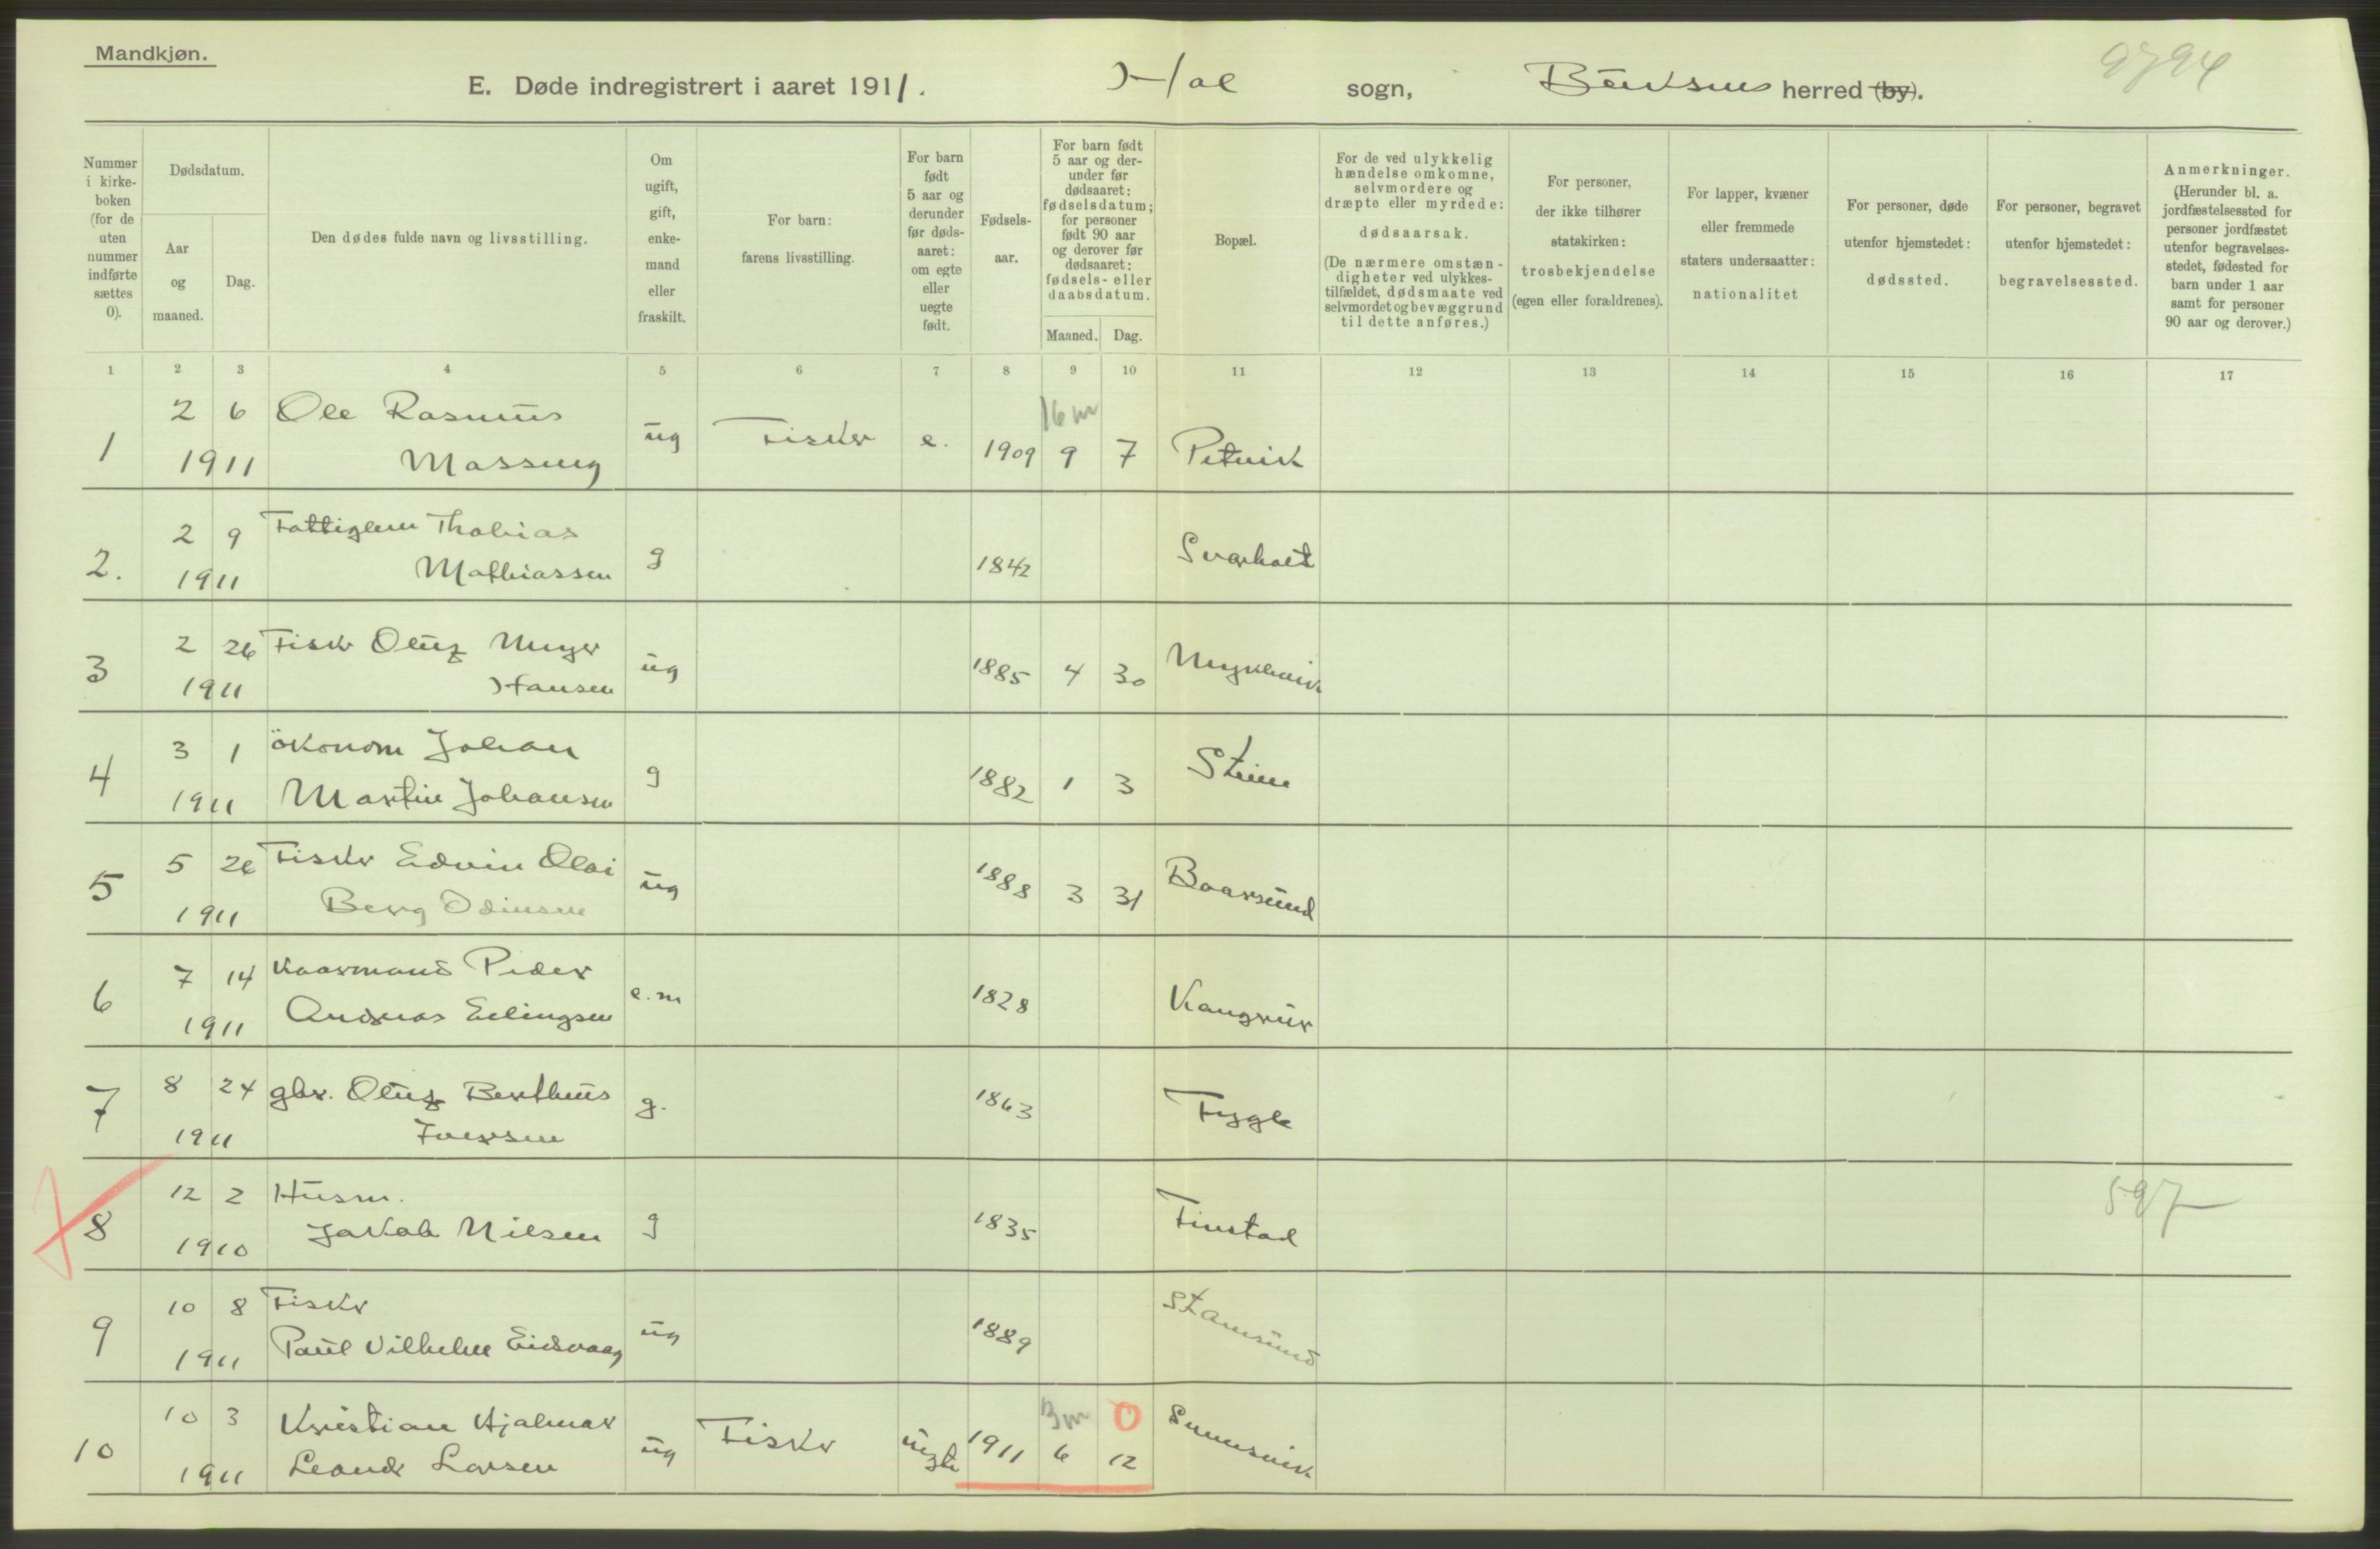 Mandkjøn.
E. Døde indregistrert i aaret 1911. Hol sogn, Buksnes herred (by).
9794
Nummer i kirke- boken (for de uten nummer indførte sættes 0).
Dødsdatum.
Aar og maaned.
Dag.
Den dødes fulde navn og livsstilling.
Om ugift, gift, enke- mand eller fraskilt.
For barn: farens livsstilling.
For barn født 5 aar og derunder før døds- aaret: om egte eller uegte født.
Fødsels- aar.
For barn født 5 aar og der- under før dødsaaret: fødselsdatum; for personer født 90 aar og derover før dødsaaret: fødsels- eller daabsdatum.
Maaned. Dag.
Bopæl.
For de ved ulykkelig hændelse omkomne, selvmordere og dræpte eller myrdede: dødsaarsak. (De nærmere omstæn- digheter ved ulykkes- tilfældet, dødsmaate ved selvmordet og bevæggrund til dette anføres.)
For personer, der ikke tilhører statskirken: trosbekjendelse (egen eller forældrenes).
For lapper, kvæner eller fremmede staters undersaatter: nationalitet
For personer, døde utenfor hjemstedet: dødssted.
For personer, begravet utenfor hjemstedet: begravelsessted.
Anmerkninger. (Herunder bl. a. jordfæstelsessted for personer jordfæstet utenfor begravelses- stedet, fødested for barn under 1 aar samt for personer 90 aar og derover.)
1 2 3 4 5 6 7 8 9 10 11 12 13 14 15 16 17
2 6 Ole Rasmus 16 m
1 1911 Massing ug Fisker e. 1909 9 7 Petvik
2 9 Fattiglem Thobias
2. 1911 Mathiassen g 1842 Svarholt
2 26 Fisker Oluf Meyer
3 1911 Hansen ug 1885 4 30
3 1 økonom Johan
4 1911 Martin Johansen g 1882 1 3 Steine
5 26 Fisker Edvin Olai
5 1911 Berg Odinsen ug 1888 3 31 Baarsund
7 14 Kaarmand Peder
6 1911 Andreas Ellingsen e.m 1828 Kangerur
8 24 gbr. Oluf Berthus
7 1911 Iversen g. 1863 Fygle
12 2 Husm. 597
8 1910 Jakob Nilsen g 1835 Finstad
10 8 Fisker
9 1911 Paul Vilhelm Eidsvaag ug 1889 Stamsund
10 3 Kristian Hjalmar 3m 0
10 1911 Leander Larsen ug Fisker uegte 1911 6 12